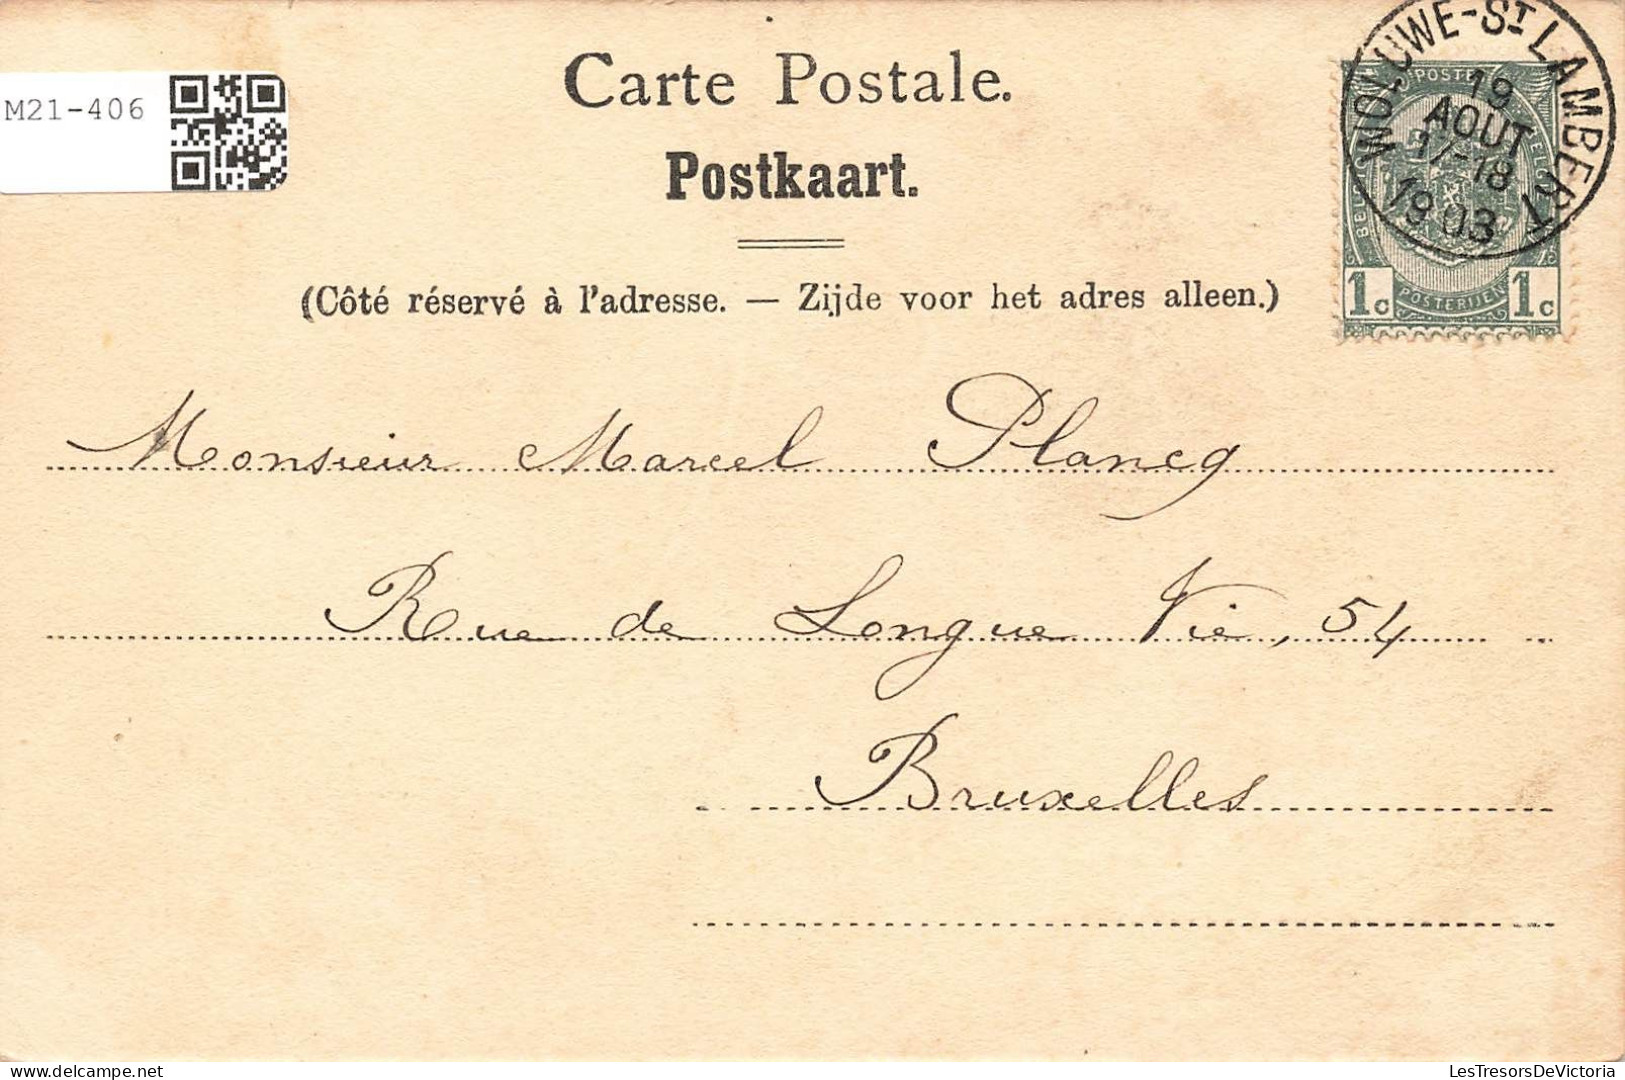 M21-406
Carte Postale.
Postkaart.
(Côté réservé à l'adresse. — Zijde voor het adres alleen.)
WOLUWE-ST LAMBERT
19
AOUT
17-18
1903
POSTES
POSTERIJEN
1c 1c
Monsieur Marcel Plancq
Rue de Longue Vie, 54
Bruxelles
Delcampe.net
LesTresorsDeVictoria